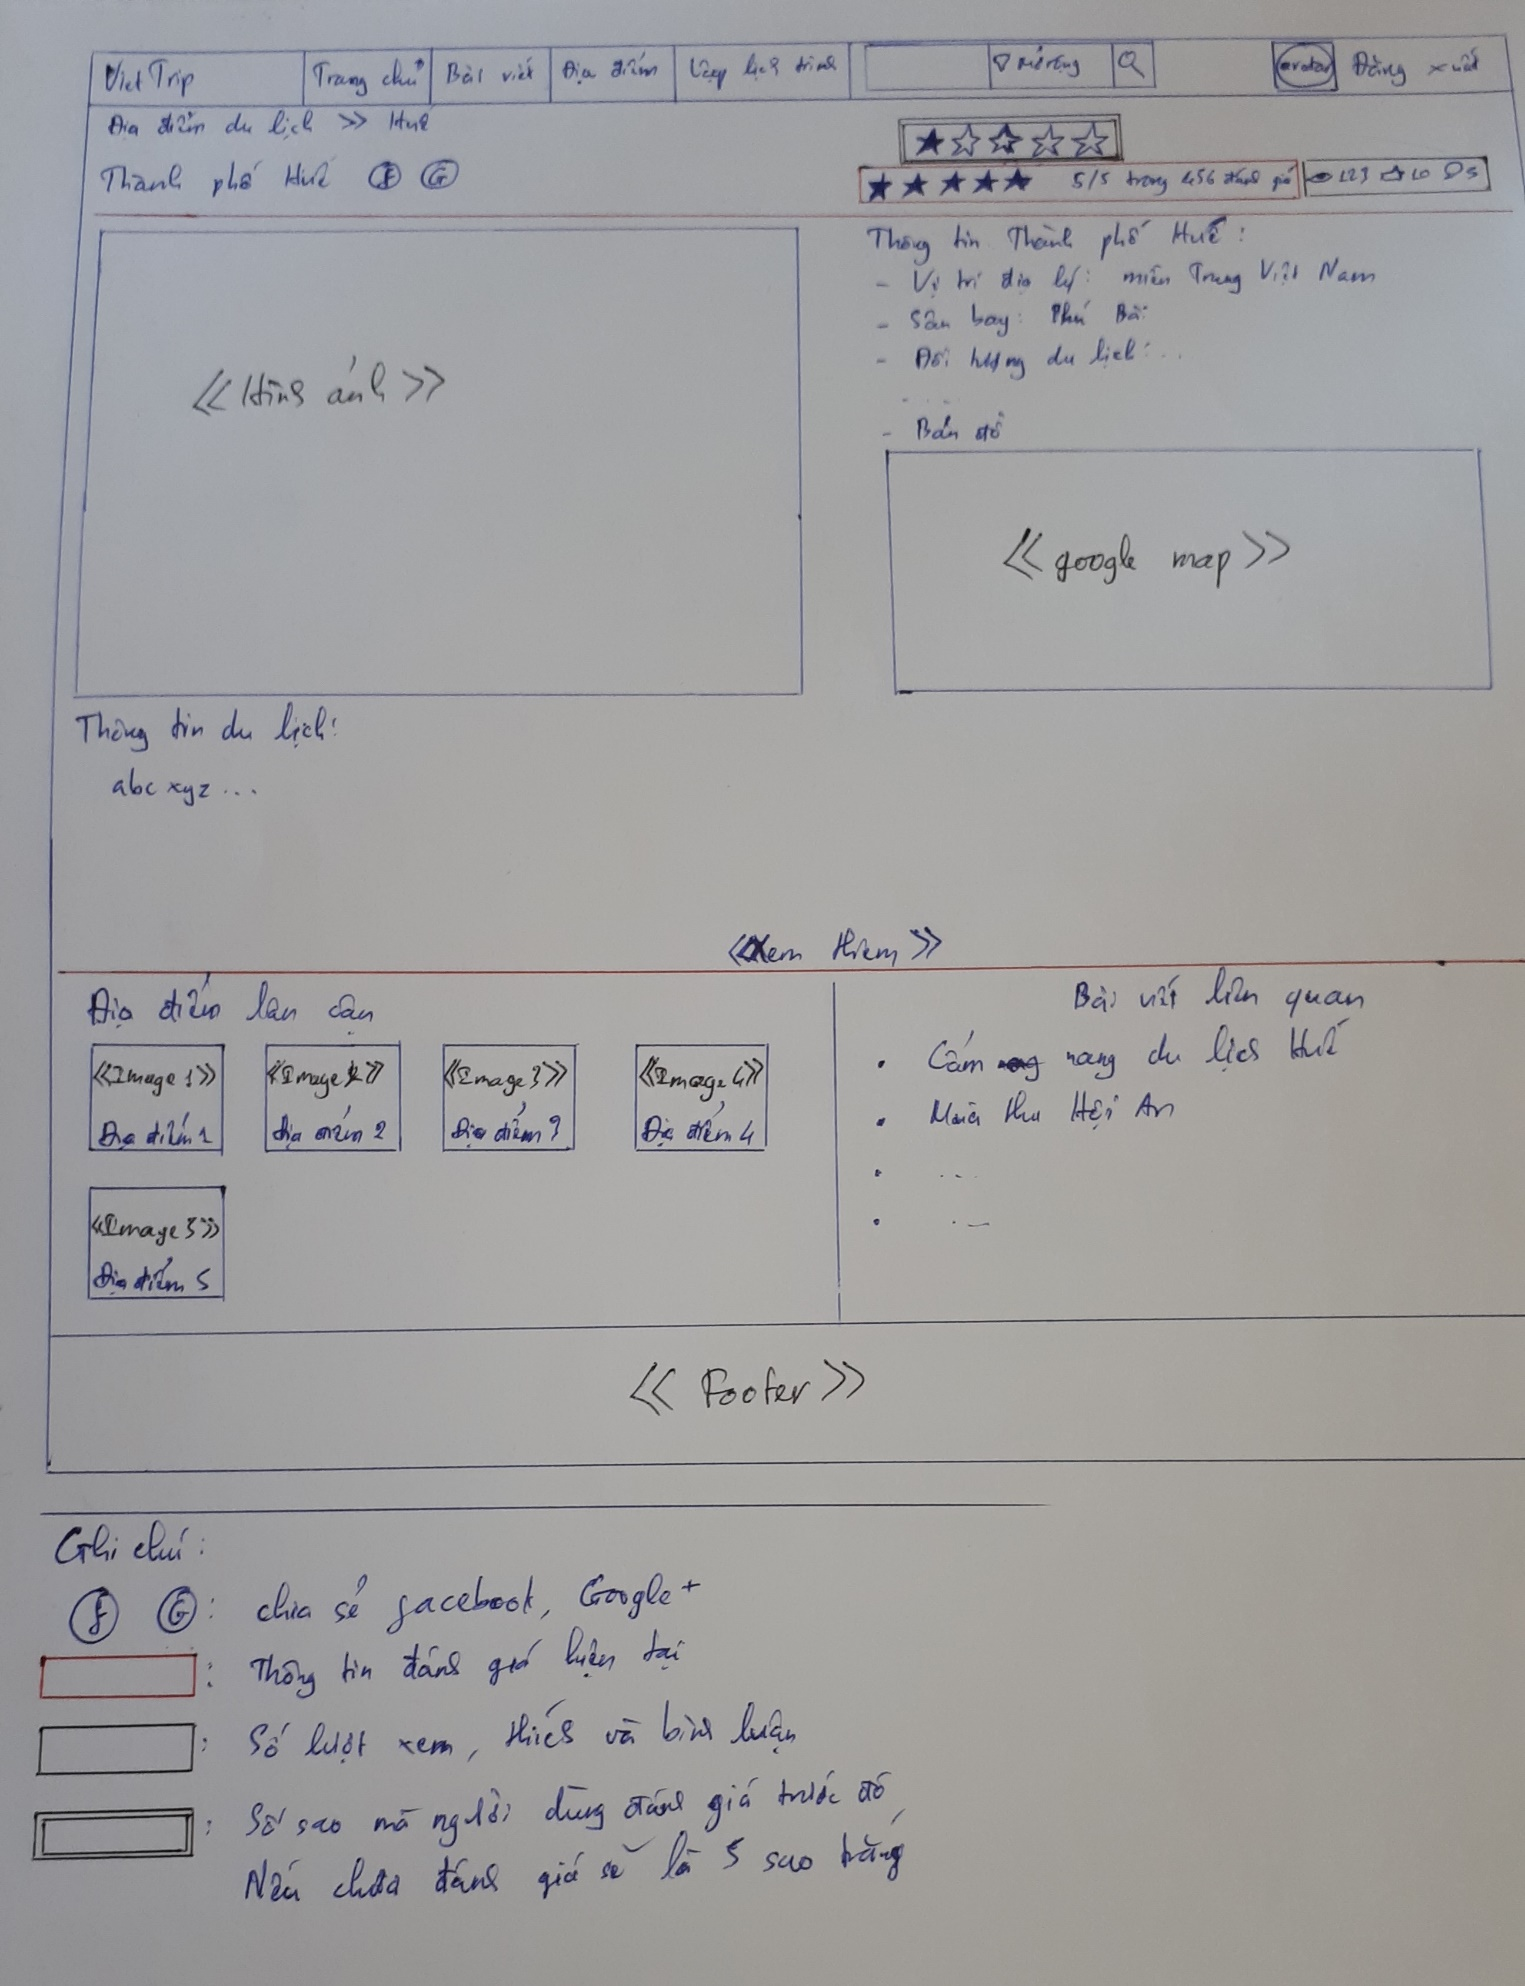 Viet Trip Trang chủ Bài viết Địa điểm Lập lịch trình ▽ Mở rộng avatar Đăng xuất
Địa điểm du lịch >> Huế
Thành phố Huế F G
5/5 trong 456 đánh giá 123 10 5
Thông tin Thành phố Huế:
- Vị trí địa lý: miền Trung Việt Nam
- Sân bay: Phú Bài
- Đối tượng du lịch: ...
....
- Bản đồ
<<Hình ảnh>>
<<google map>>
Thông tin du lịch:
abc xyz ...
<<Xem thêm>>
Địa điểm lân cận
<<Image 1>> <<Image 2>> <<Image 3>> <<Image 4>>
Địa điểm 1 Địa điểm 2 Địa điểm 3 Địa điểm 4
<<Image 5>>
Địa điểm 5
Bài viết liên quan
• Cẩm nang du lịch Huế
• Mùa thu Hội An
• ...
• ...
<< Footer >>
Ghi chú:
f G : chia sẻ facebook, Google+
: Thông tin đánh giá hiện tại
: Số lượt xem, thích và bình luận
: Số sao mà người dùng đánh giá trước đó,
Nếu chưa đánh giá sẽ là 5 sao trắng